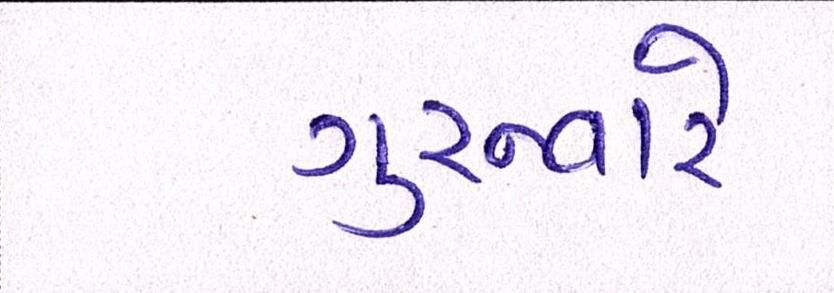 ગુરુવારે